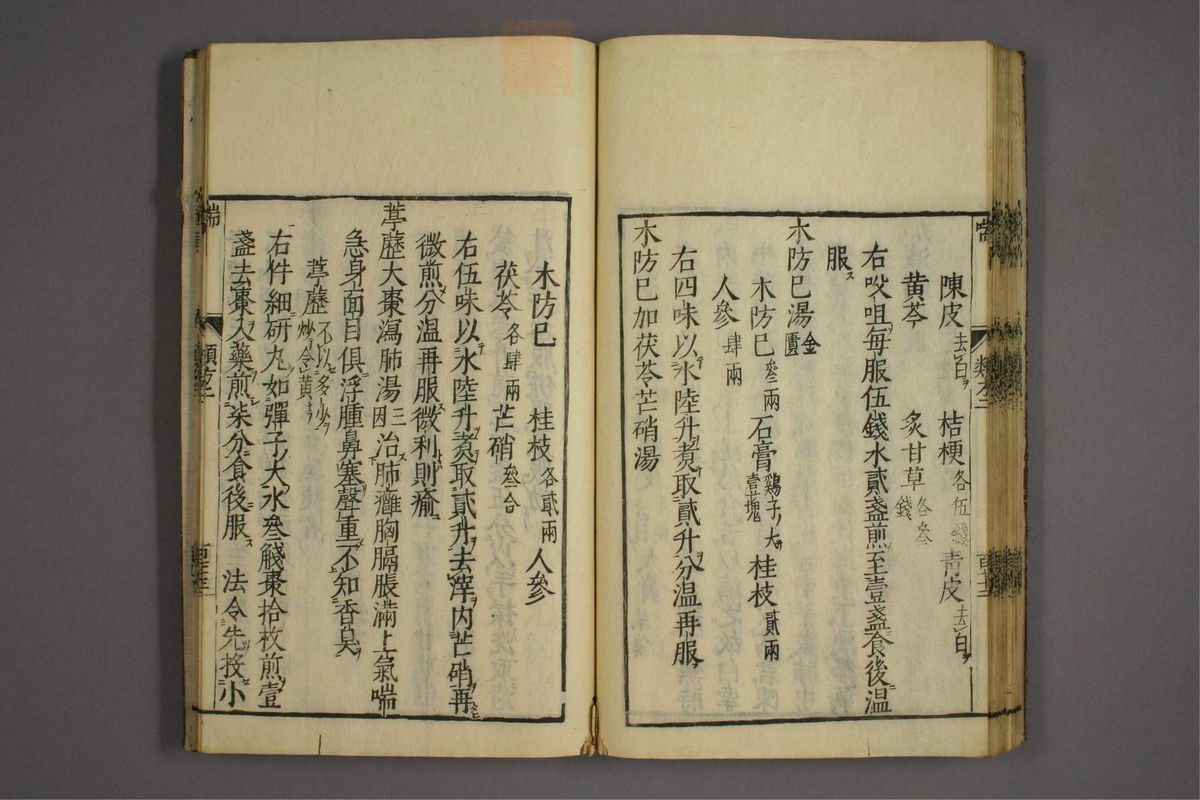 陳皮去白 桔梗各伍錢 青皮去白
黄芩 炙甘草各叄錢
右㕮咀每服伍錢水貳盞煎至壹盞食後温
服
木防巳湯金匱
木防巳叄兩 石膏鷄子大壹塊 桂枝貳兩
人參肆兩
右四味以水陸升煮取貳升分温再服
木防巳加茯苓芒硝湯
木防巳 桂枝各貳兩 人參
茯苓各肆兩 芒硝叄合
右伍味以水陸升煮取貳升去滓内芒硝再
微煎分温再服微利則瘉
葶藶大棗瀉肺湯三因 治肺癰胸膈脹滿上氣喘
急身面目俱浮腫鼻塞聲重不知香臭
葶藶不以多少炒令黄
右件細研丸如彈子大水叄盞棗拾枚煎壹
盞去棗入藥煎柒分食後服 法令先投小
喘